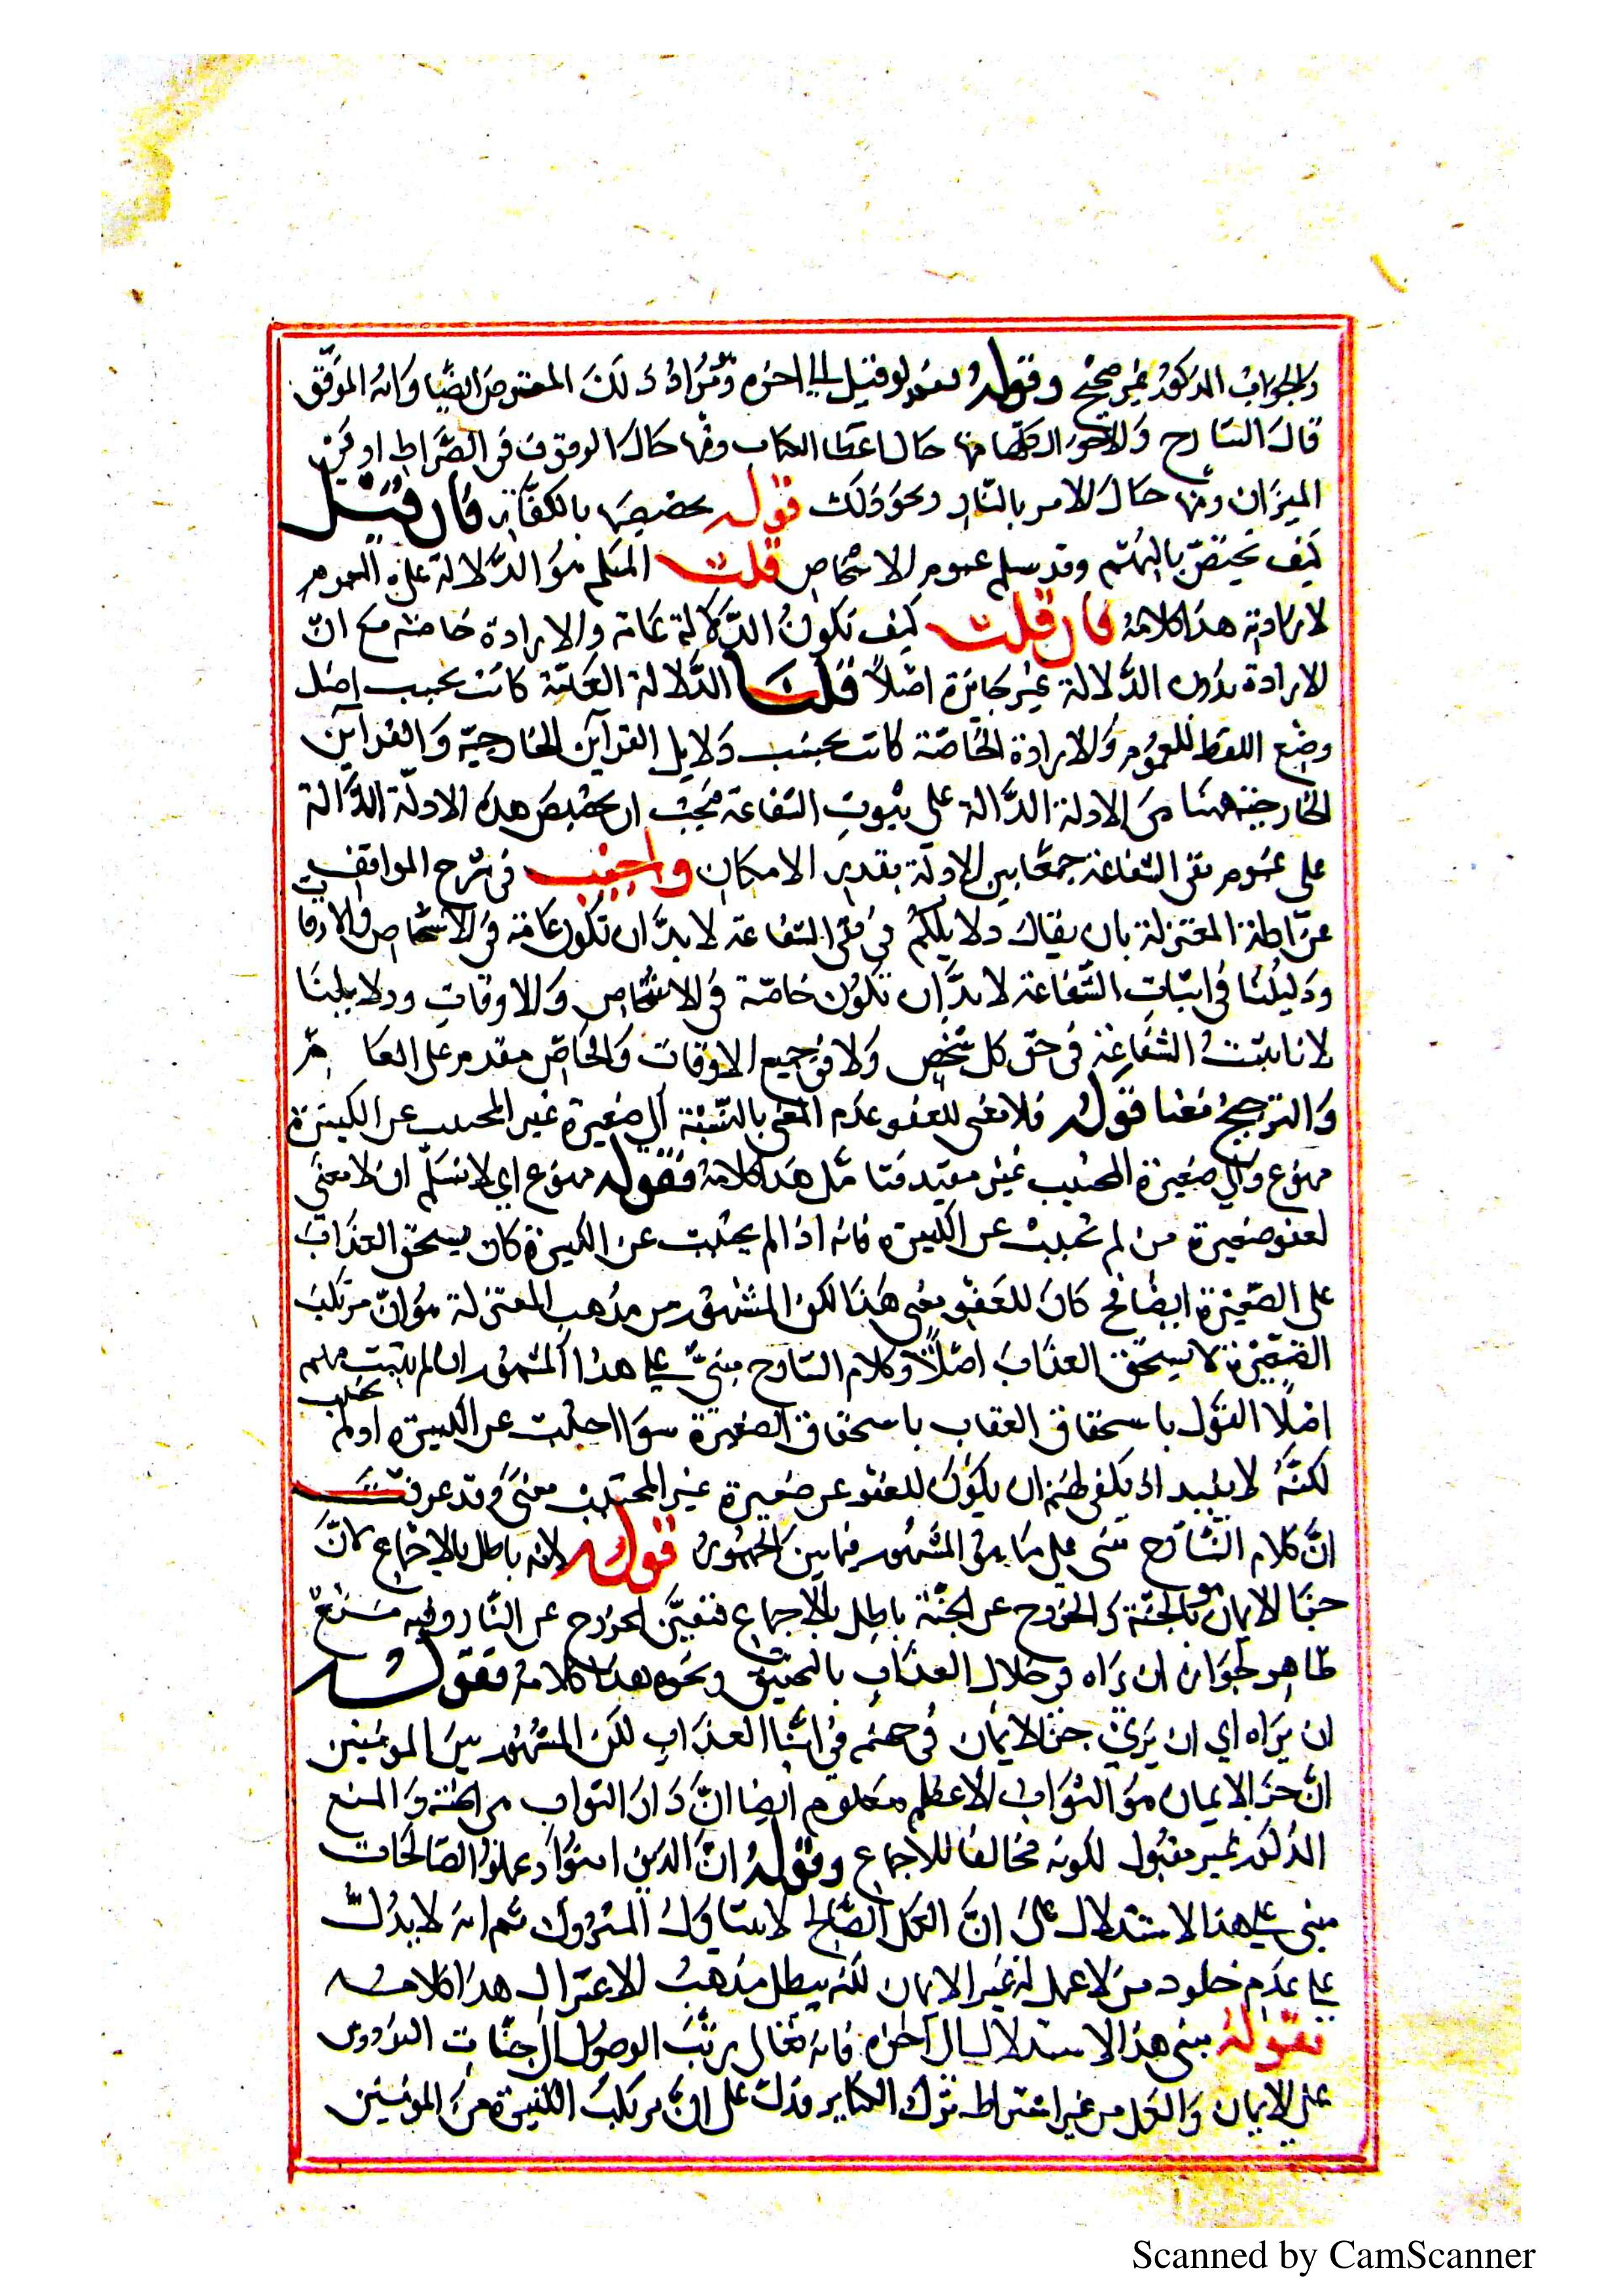 والجواب المذكور غير صحيح وقوله نعم لو قيل الى اخره ومراد ذلك المعترض ايضًا وانه الموفّق
قال الشارح والاحوال كلها منها حال اعطا الكتاب ومنها حال الوقوف في الصّراط او في
الميزان ومنها حال الامر بالنّار ونحو ذلك قوله تخصيصها بالكفّار فان قيل
كيف تختصّ بالبهم وقد سلم عموم الاشخاص قلت المسلم هو الدّلالة على العموم
لا ارادته هذا كلامه فان قلت كيف تكون الدّلالة عامة والارادة خاصّة مع انّ
الارادة بدون الدّلالة غير جائزة اصلًا قلنا الدّلالة العامّة كانت بحسب اصل
وضع اللفظ للعموم والارادة الخاصّة كانت بحسب دلايل القرآين الخارجيّة والقرآين
الخارجية ههنا من الادلة الدّالة على ثبوت الشفاعة فيجب ان تخصيص هذه الادلّة الدّالة
على عموم نفى الشفاعة جمعًا بين الادلّة بقدر الامكان واجيب في شرح المواقف
عن ادلة المعتزلة بان يقال دلايلكم في نفى الشفاعة لا بدّ ان تكون عامّة في الاشخاص والاوقات
ودليلنا في اثبات الشّفاعة لا بدّ ان تكون خاصّة في الاشخاص والاوقات ودلايلنا
لانا نثبت الشفاعة في حق كل شخص ولا في جميع الاوقات والخاصّ مقدم على العام
والترجيح معنا قوله فلا معنى للعفو عدم المعنى بالنّسبة الى صغيرة غير المجتنب عن الكبيرة
ممنوع والى صغيرة المجتنب غير مقيد فتامّل هذا كلامه فقوله ممنوع اي لا نسلّم ان لا معنى
لعفو صغيرة من لم تجتنب عن الكبيرة فانه اذا لم يجتنب عن الكبيرة كان يستحق العذاب
على الصّغيرة ايضًا فح كان للعفو معنى هذا لكن المشهور من مذهب المعتزلة هو انّ مرتكب
الصّغيرة لا يستحق العذاب اصلًا وكلام الشارح مبنىّ على هذا المشهور ان لم يثبت منهم
اصلًا القول باستحقاق العقاب باستحقاق الصغيرة سوا اجتنبت عن الكبيرة او لم تجتنب
لكنّه لا يفيد اذ يكفى لهم ان يكون للعفو عن صغيرة غير المجتنب معنى وقد عرفت
انّ كلام الشّارح مبنى على ما هو المشهور فيما بين الجمهور قوله لانه باطل بالاجماع لانّ
جزا الايمان هو الجنّة والخروج عن الجنّة باطل بالاجماع فتعيّن الخروج عن النّار وفيه منع
ظاهر لجواز ان يراه في خلال العذاب بالتخفيف ونحوه هذا كلامه فقوله
ان يراه اي ان يرى جزا الايمان في جهنّم في اثنا العذاب لكن المشهور بين المومنين
انّ جزا الايمان هو الثواب الاعظم معلوم ايضا انّ دار الثواب هى الجنّة والمنع
المذكور غير مقبول لكونه مخالفا للاجماع وقوله انّ الذين امنوا وعملوا الصّالحات
مبنى على هذا الاستدلال على انّ العمل الصّالح لا يتناول المتروك ثم انه لا يدلّ
على عدم خلود من لا عمل له غير الايمان لكنه يبطل مذهب الاعتزال هذا كلامه
فقوله مبنى هذا الاستدلال الى آخره فانه تعالى رتّب الوصول الى جنّات الفردوس
على الايمان والعمل من غير اشتراط ترك الكباير فدلّ على انّ مرتكب الكبيرة من المومنين
Scanned by CamScanner